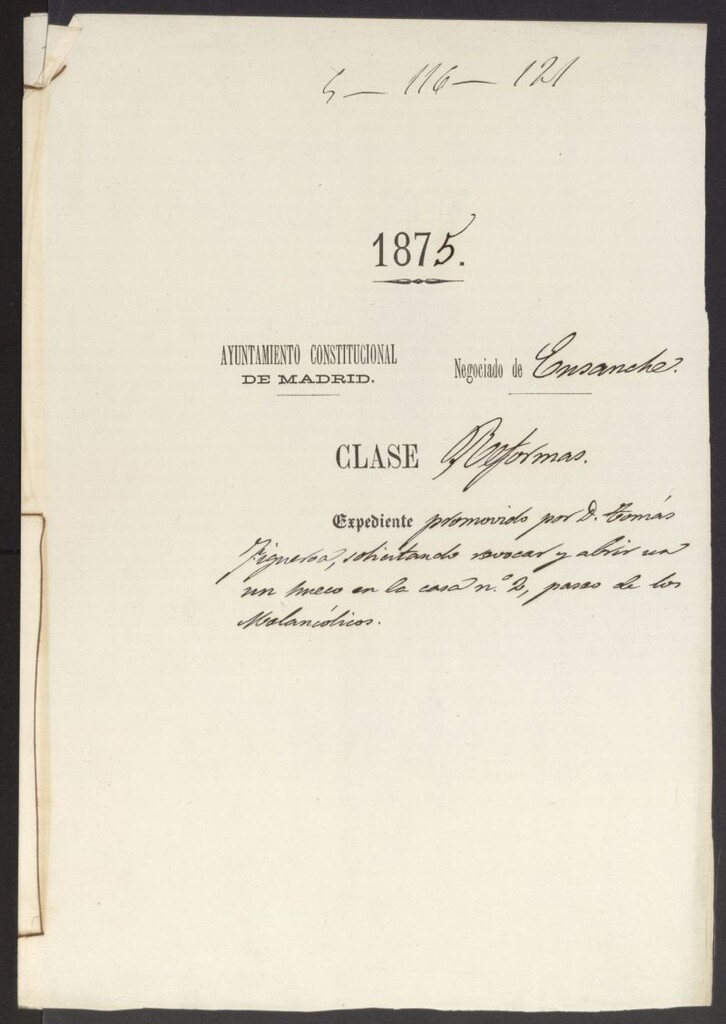 5 — 116 — 121
1875.
AYUNTAMIENTO CONSTITUCIONAL
DE MADRID.
Negociado de Ensanche.
CLASE Reformas.
Expediente promovido por D. Tomás
Figueroa, solicitando revocar y abrir un
un hueco en la casa n.º 2, paseo de los
Melancólicos.